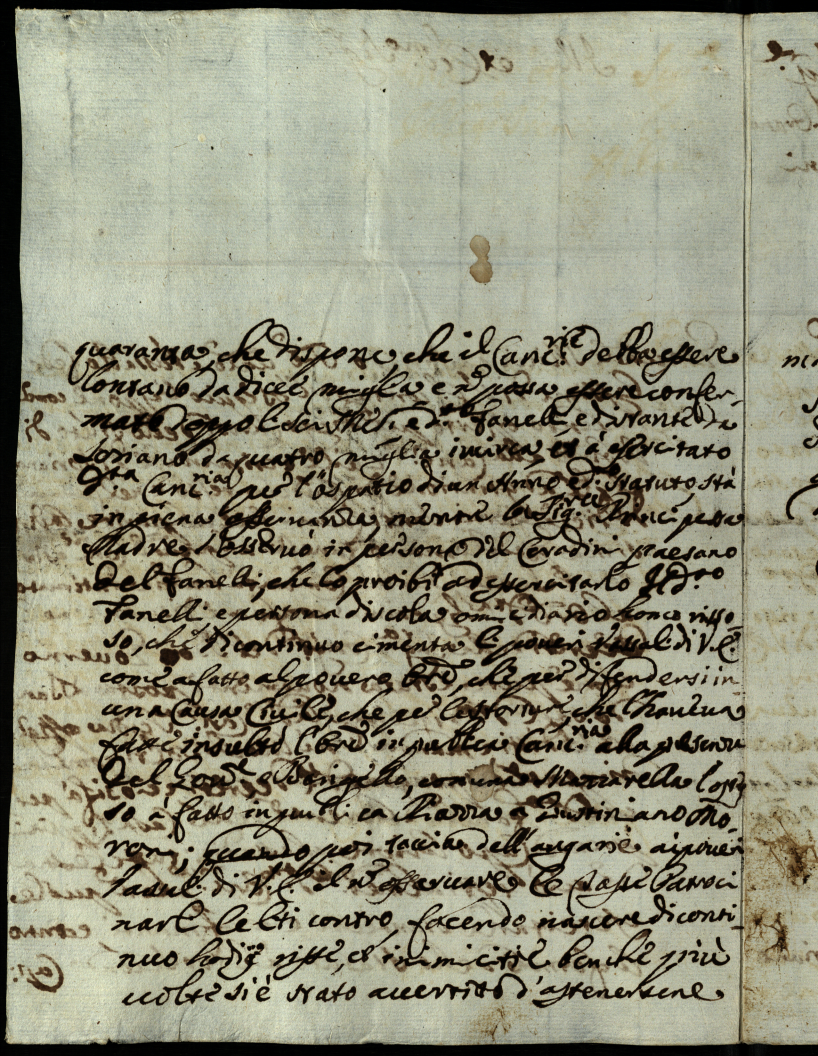 quaranta, che dispone, che il Canc.rie debba essere
lontano da diece miglia e nõ possa essere confer-
mato doppo li sei Mesi, e d.to Fanelli e distante da
Soriano da quatro miglia in circa, et à essercitato
d.ta Canc.ria per l'ospatio di un Anno e d.to statuto stà
in piena osservanza, mentre la Sig.ra Principessa
Madre l'osservò in persona del Coradini paesano
del Fanelli, che lo proibì ad essercitarlo. Il d.to
Fanelli, e persona discola
so, che di continuo cimenta li poveri Vassalli di V.E.
come à fatto al povero che per difendersi in
una Causa Civile, che per che l'haveva
fatto insulto in publica Canc.ria alla presenza
del Gov.re e Barigello, con una l'ostes-
so à fatto in publica Piazza a Giustiniano Mo-
roni; quando poi taccia dell'angarie ai poveri
Vassalli di V.E. il nõ osservare le Tasse Patroci-
nar le liti contro, facendo nascere di conti-
nuo risse, et inimicitie benche più
volte si è stato avertito d'astenersene